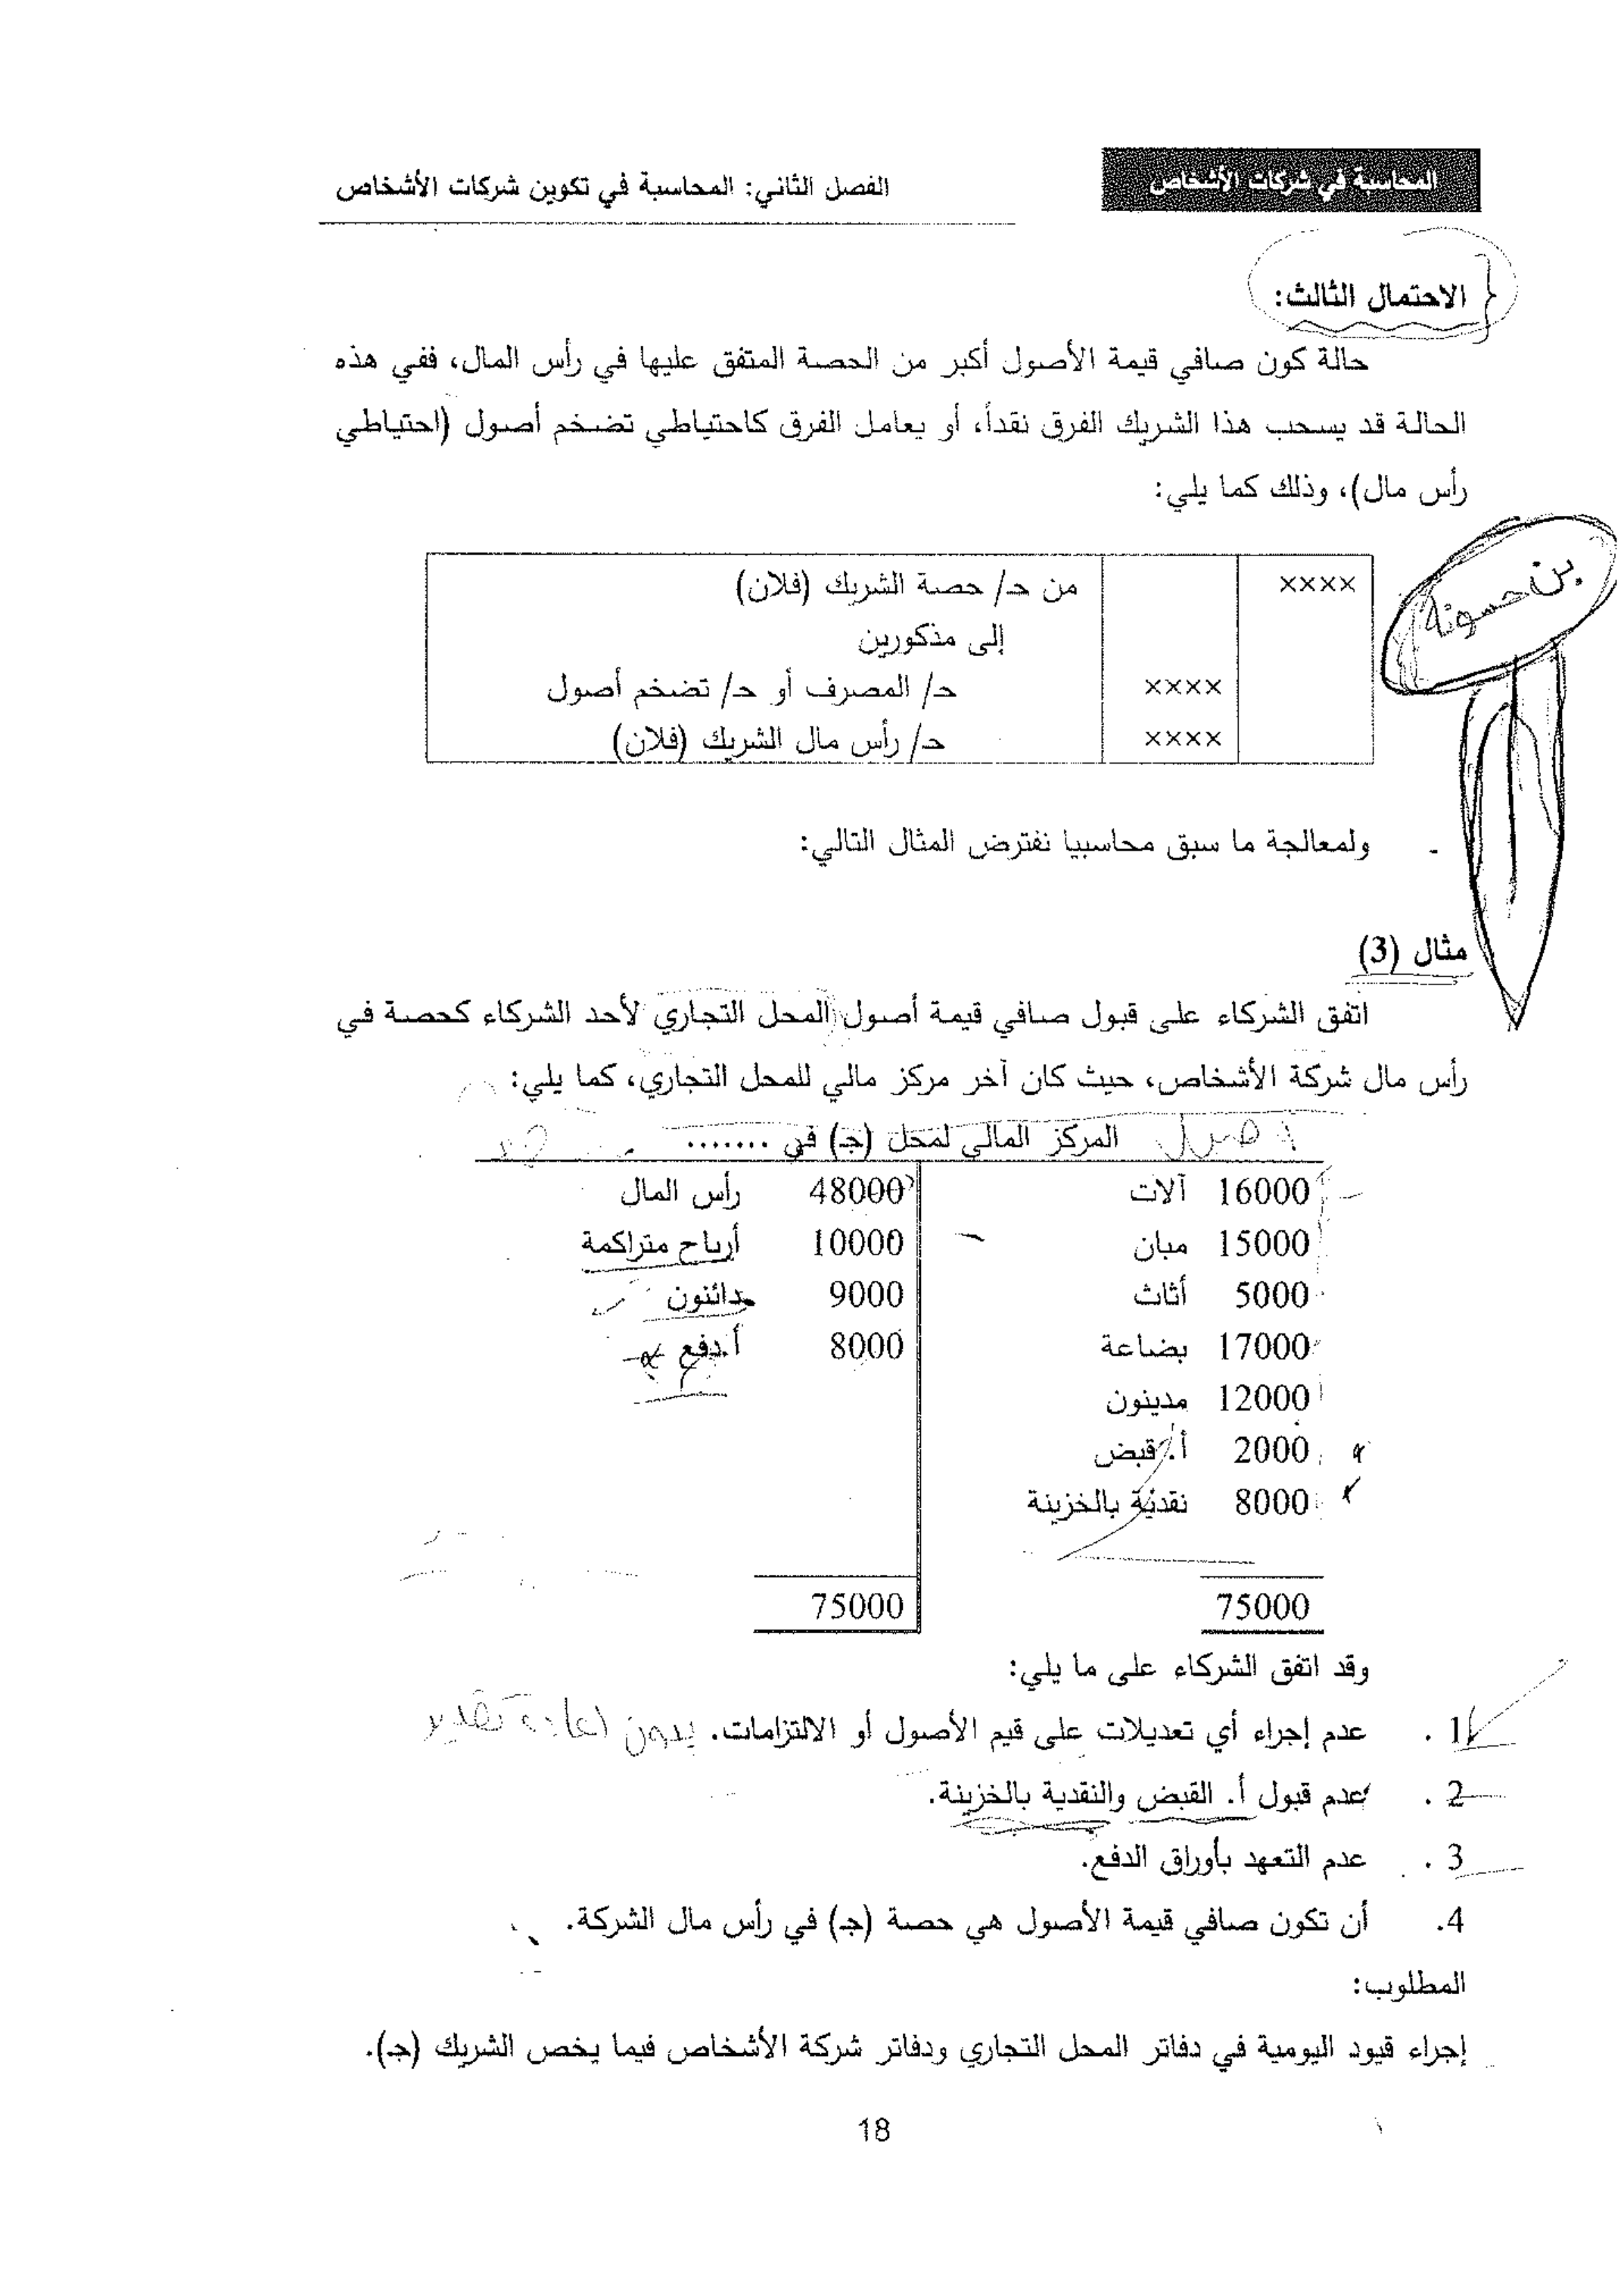 المحاسبة في شركات الأشخاص
الفصل الثاني: المحاسبة في تكوين شركات الأشخاص
الاحتمال الثالث:
حالة كون صافي قيمة الأصول أكبر من الحصة المتفق عليها في رأس المال، ففي هذه
الحالة قد يسحب هذا الشريك الفرق نقداً، أو يعامل الفرق كاحتياطي تضخم أصول (احتياطي
رأس مال)، وذلك كما يلي:
×××× من حـ/ حصة الشريك (فلان)
إلى مذكورين
×××× حـ/ المصرف أو حـ/ تضخم أصول
×××× حـ/ رأس مال الشريك (فلان)
بن حسونه
- ولمعالجة ما سبق محاسبيا نفترض المثال التالي:
مثال (3)
اتفق الشركاء على قبول صافي قيمة أصول المحل التجاري لأحد الشركاء كحصة في
رأس مال شركة الأشخاص، حيث كان آخر مركز مالي للمحل التجاري، كما يلي:
أصول المركز المالي لمحل (جـ) في .......
16000 آلات 48000 رأس المال
15000 مبان 10000 أرباح متراكمة
5000 أثاث 9000 دائنون
17000 بضاعة 8000 أ.دفع
12000 مدينون
2000 أ. قبض
8000 نقدية بالخزينة
75000 75000
وقد اتفق الشركاء على ما يلي:
1. عدم إجراء أي تعديلات على قيم الأصول أو الالتزامات. بدون إعادة تقدير
2. عدم قبول أ. القبض والنقدية بالخزينة.
3. عدم التعهد بأوراق الدفع.
4. أن تكون صافي قيمة الأصول هي حصة (جـ) في رأس مال الشركة.
المطلوب:
إجراء قيود اليومية في دفاتر المحل التجاري ودفاتر شركة الأشخاص فيما يخص الشريك (جـ).
18